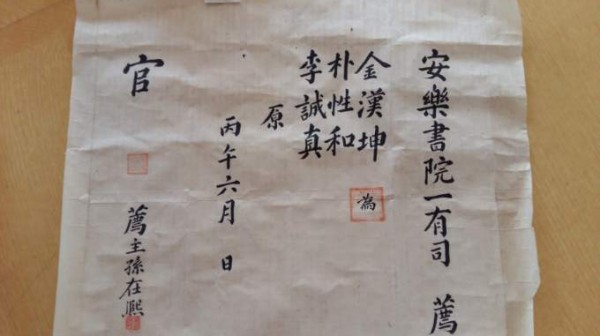 安樂書院一有司 薦
金漢坤 薦
朴性和
李誠真
原
丙午六月 日
薦主孫在熙
官